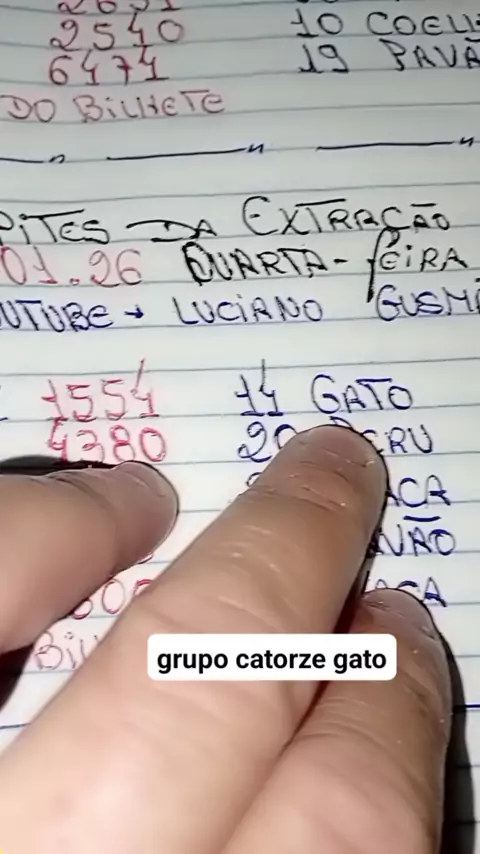 2540 10 COEL
6474 19 PAVÃ
DO BILHETE
DA EXTRAÇÃO
01.26 QUARTA-fEIRA
LUCIANO GUSM
1554 14 GATO
4380 20 PERU
ACA
VÃO
ACA
grupo catorze gato